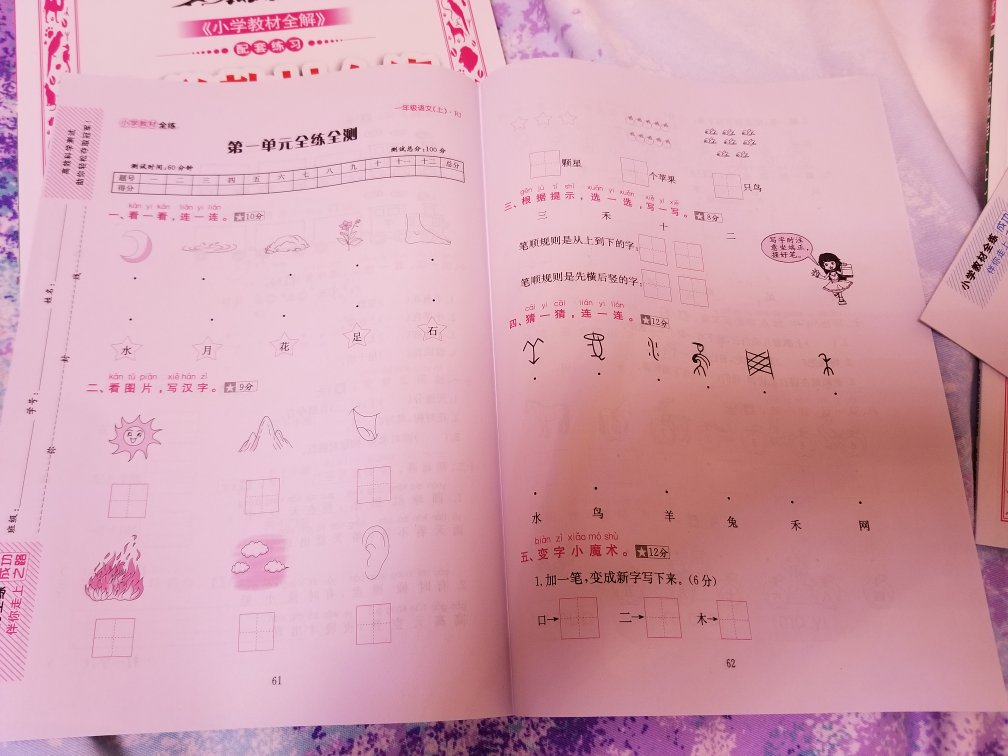 《小学教材全解》
配套练习
小学教材全练
一年级语文(上)·RJ
高效科学测试
助你轻松夺取冠军!
第一单元全练全测
测试时间:60分钟
测试总分:100分
题号 一 二 三 四 五 六 七 八 九 十 十一 十二 总分
得分
kàn yi kàn lián yi lián
一、看一看,连一连。★10分
水 月 花 足 石
kàn tú piàn xiě hàn zì
二、看图片,写汉字。★9分
61
班级:
学号:
姓名:
线
封
成功
之路
伴你走上
颗星
个苹果
只鸟
gēn jù tí shì xuǎn yi xuǎn xiě yi xiě
三、根据提示,选一选,写一写。★8分
三 禾 十 二
笔顺规则是从上到下的字:
笔顺规则是先横后竖的字:
写字时注
意坐端正,
握好笔。
cāi yi cāi lián yi lián
四、猜一猜,连一连。★12分
水 鸟 羊 兔 禾 网
biàn zì xiǎo mó shù
五、变字小魔术。★12分
1.加一笔,变成新字写下来。(6分)
口→ 二→ 木→
62
小学教材全练
伴你走